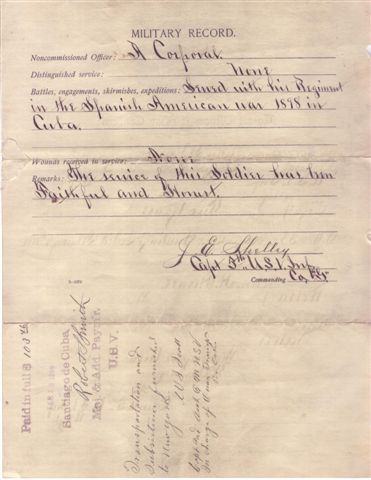 MILITARY RECORD.
Noncommissioned Officer: A Corporal.
Distinguished service: None
Battles, engagements, skirmishes, expeditions: Served with his Regiment
in the Spanish American war 1898 in
Cuba.
Wounds received in service: None
Remarks: The service of this Soldier has been
Faithful and Honest.
J E Shelley
Capt 5th U.S.V. Inf.
Commanding Co.
Paid in full $ 103
Santiago de Cuba,
Robert Smith
Maj. & Add. Paym'r.
U.S.V.
Transportation and
Subsistence furnished
to New York